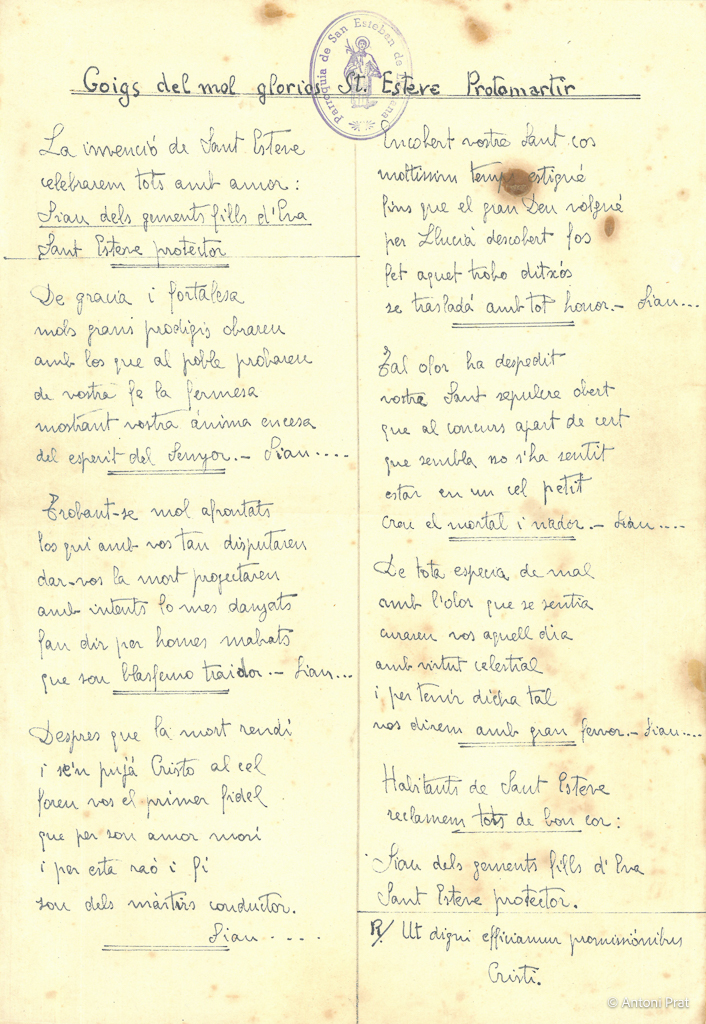 Goigs del mol glorios St. Esteve Protomartir
Parroquia de San Esteban de
La invenció de Sant Esteve
celebrarem tots amb amor:
Siau dels gements fills d'Eva
Sant Esteve protector
De gracia i fortalesa
mols grans prodigis obrareu
amb los que al poble probareu
de vostra fe la fermesa
mostrant vostra ánima encesa
del esperit del Senyor.- Siau....
Trobant-se mol afrontats
los qui amb vos tan disputaren
dar-vos la mort projectaren
amb intents lo mes danyats
fan dir per homes malvats
que sou blasfemo traidor.- Siau...
Despres que la mort rendí
i se'n pujá Cristo al cel
foreu vos el primer fidel
que per son amor morí
i per esta raó i fi
sou dels màrtirs conductor.
Siau....
Encobert vostre Sant cos
moltissim temps estigué
fins que el gran Deu volgué
per Llucià descobert fos
fet aquet trobo ditxós
se trasladá amb tot honor.- Siau...
Tal olor ha despedit
vostre Sant sepulcre obert
que al concurs apart de cert
que sembla no s'ha sentit
estar en un cel petit
creu el mortal i nador.- Siau....
De tota especia de mal
amb l'olor que se sentia
curareu vos aquell dia
amb virtut celestial
i per tenir dicha tal
vos direm amb gran fervor.- Siau....
Habitants de Sant Esteve
reclamem tots de bon cor:
Siau dels gements fills d'Eva
Sant Esteve protector.
R/ Ut digni efficiamur promissiónibus
Cristi.
© Antoni Prat